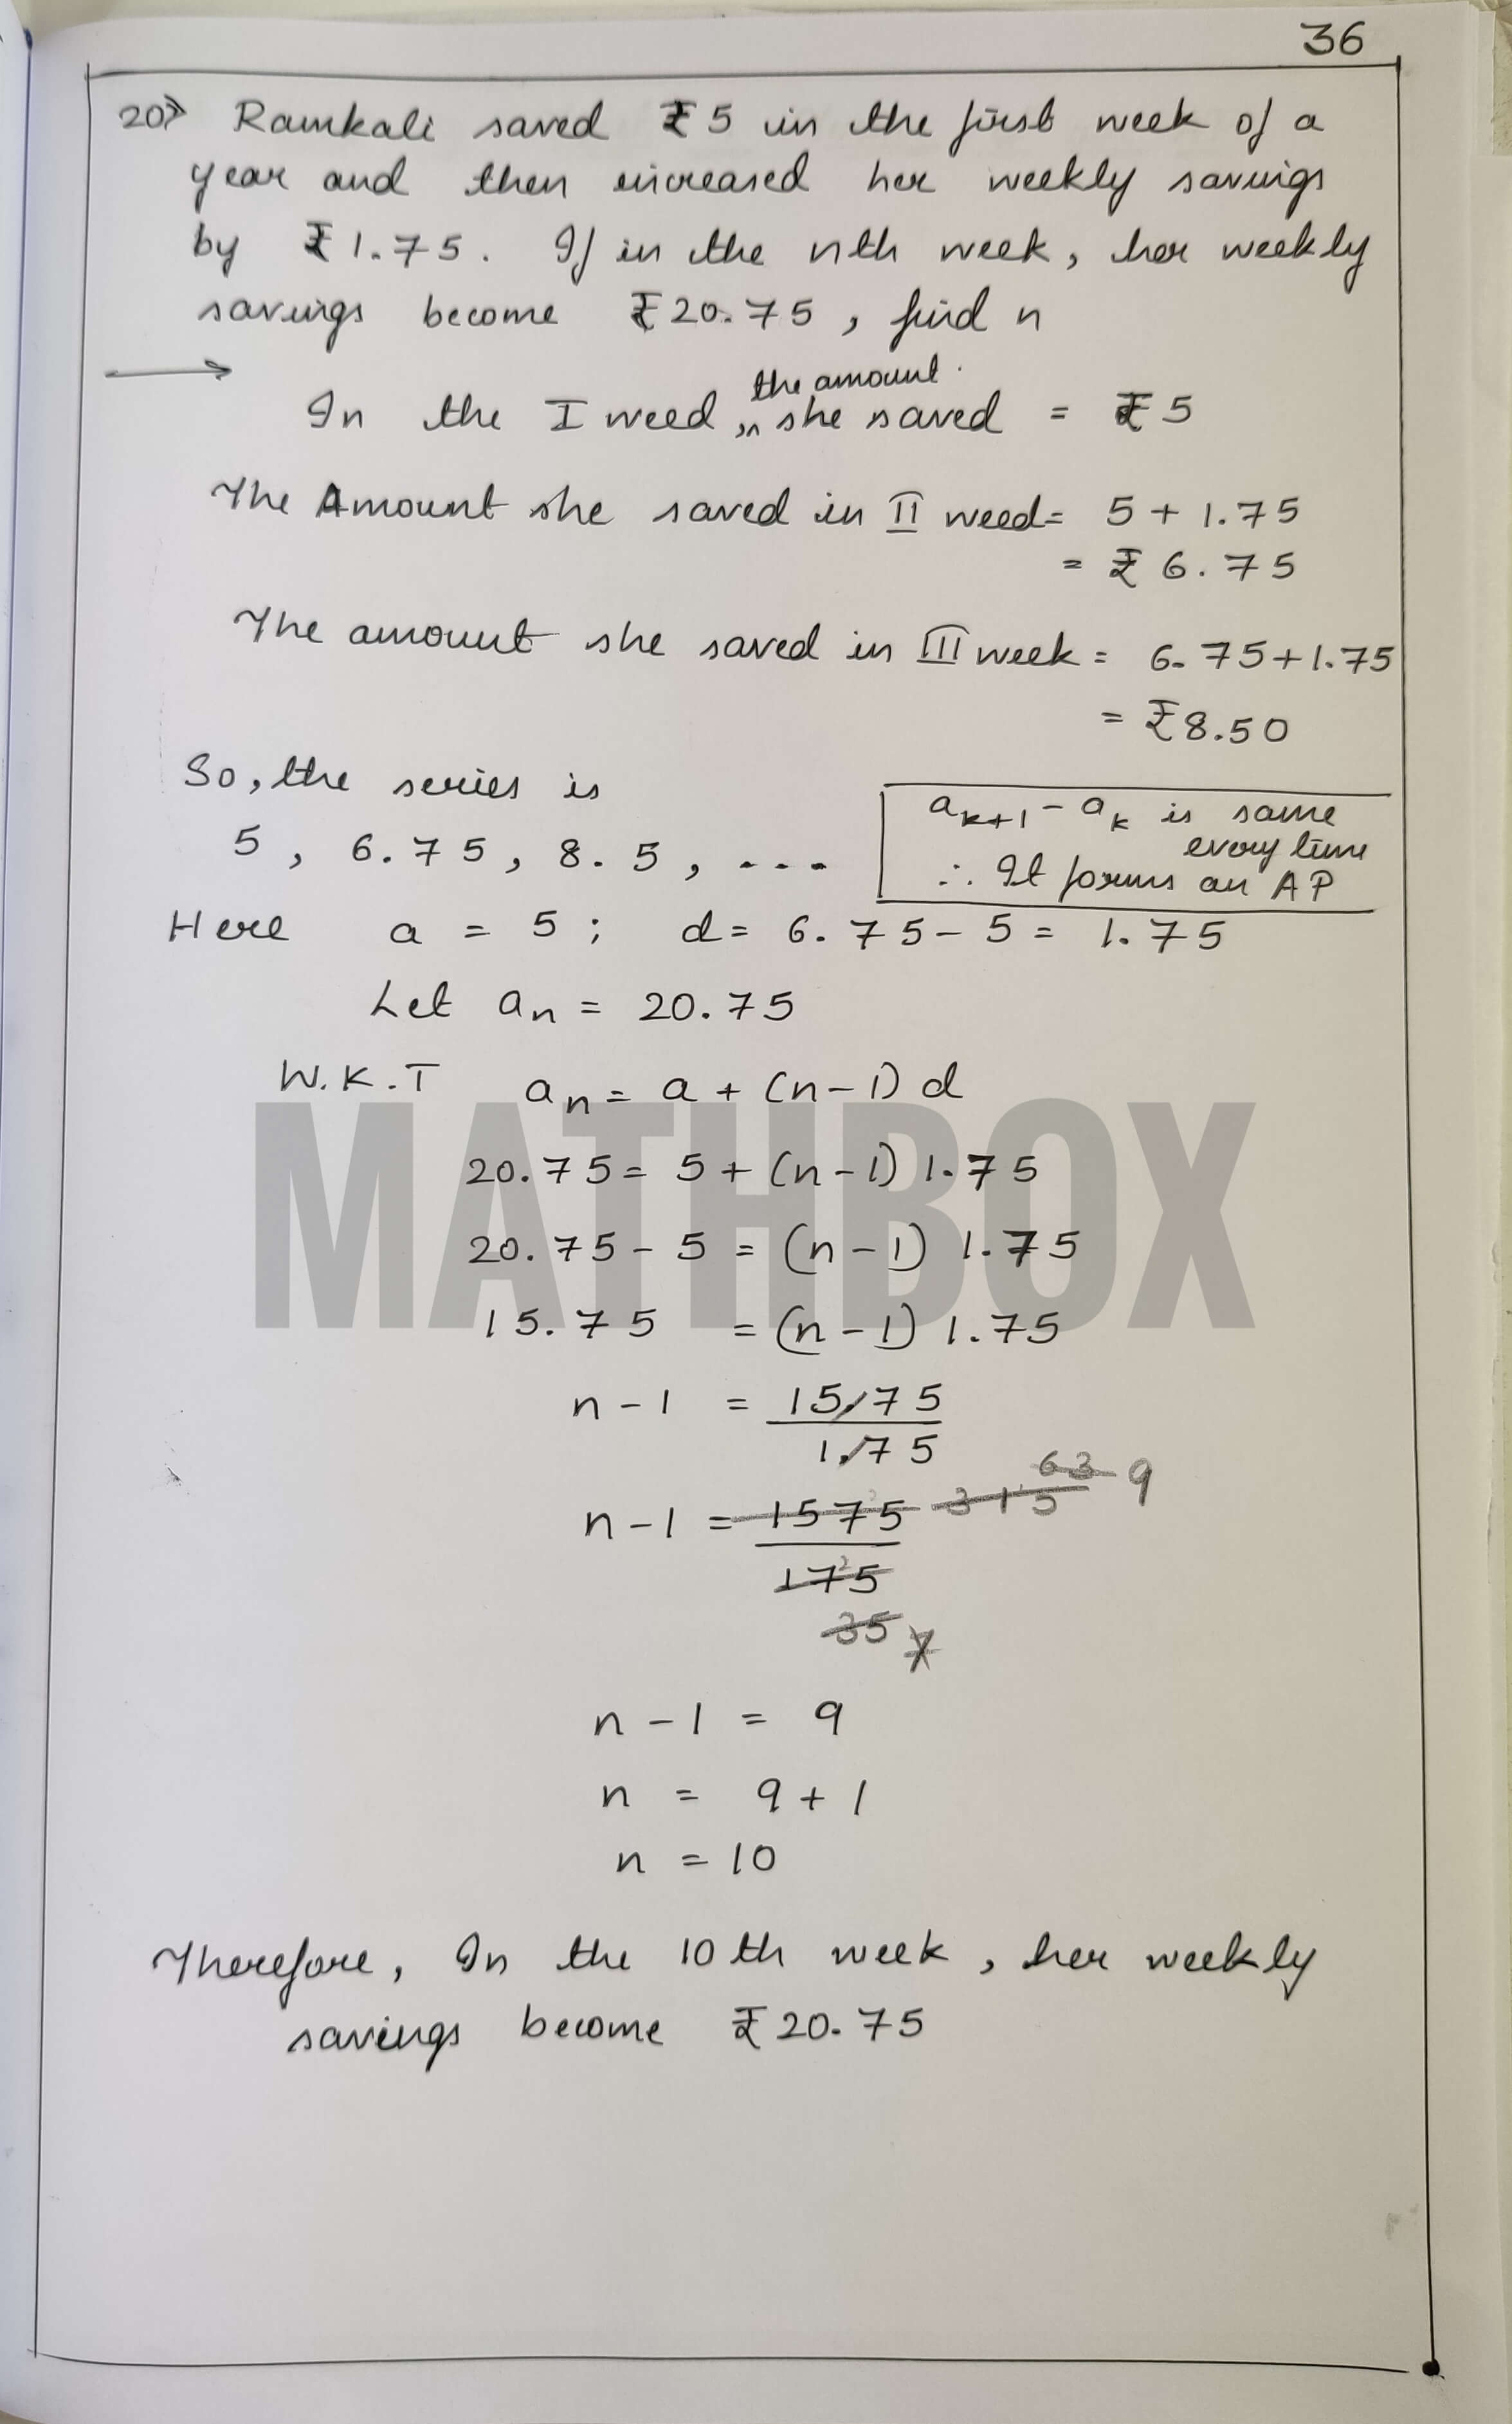 36
20> Ramkali saved ₹5 in the first week of a
year and then increased her weekly savings
by ₹1.75. If in the nth week, her weekly
savings become ₹20.75, find n
the amount.
In the I weed, she saved = ₹5
The Amount she saved in II weed= 5+1.75
= ₹6.75
The amount she saved in III week = 6.75+1.75
= ₹8.50
So, the series is
5, 6.75, 8.5, ...
aₖ₊₁ - aₖ is same
every time
∴ It forms an AP
Here a = 5; d= 6.75-5= 1.75
Let aₙ = 20.75
W.K.T aₙ = a + (n-1) d
MATHBOX
20.75= 5+(n-1) 1.75
20.75-5 = (n-1) 1.75
15.75 = (n-1) 1.75
n-1 = 15.75
1.75
63 9
n-1 = 1575 315
175
35 7
n-1 = 9
n = 9+1
n = 10
Therefore, In the 10th week, her weekly
savings become ₹20.75